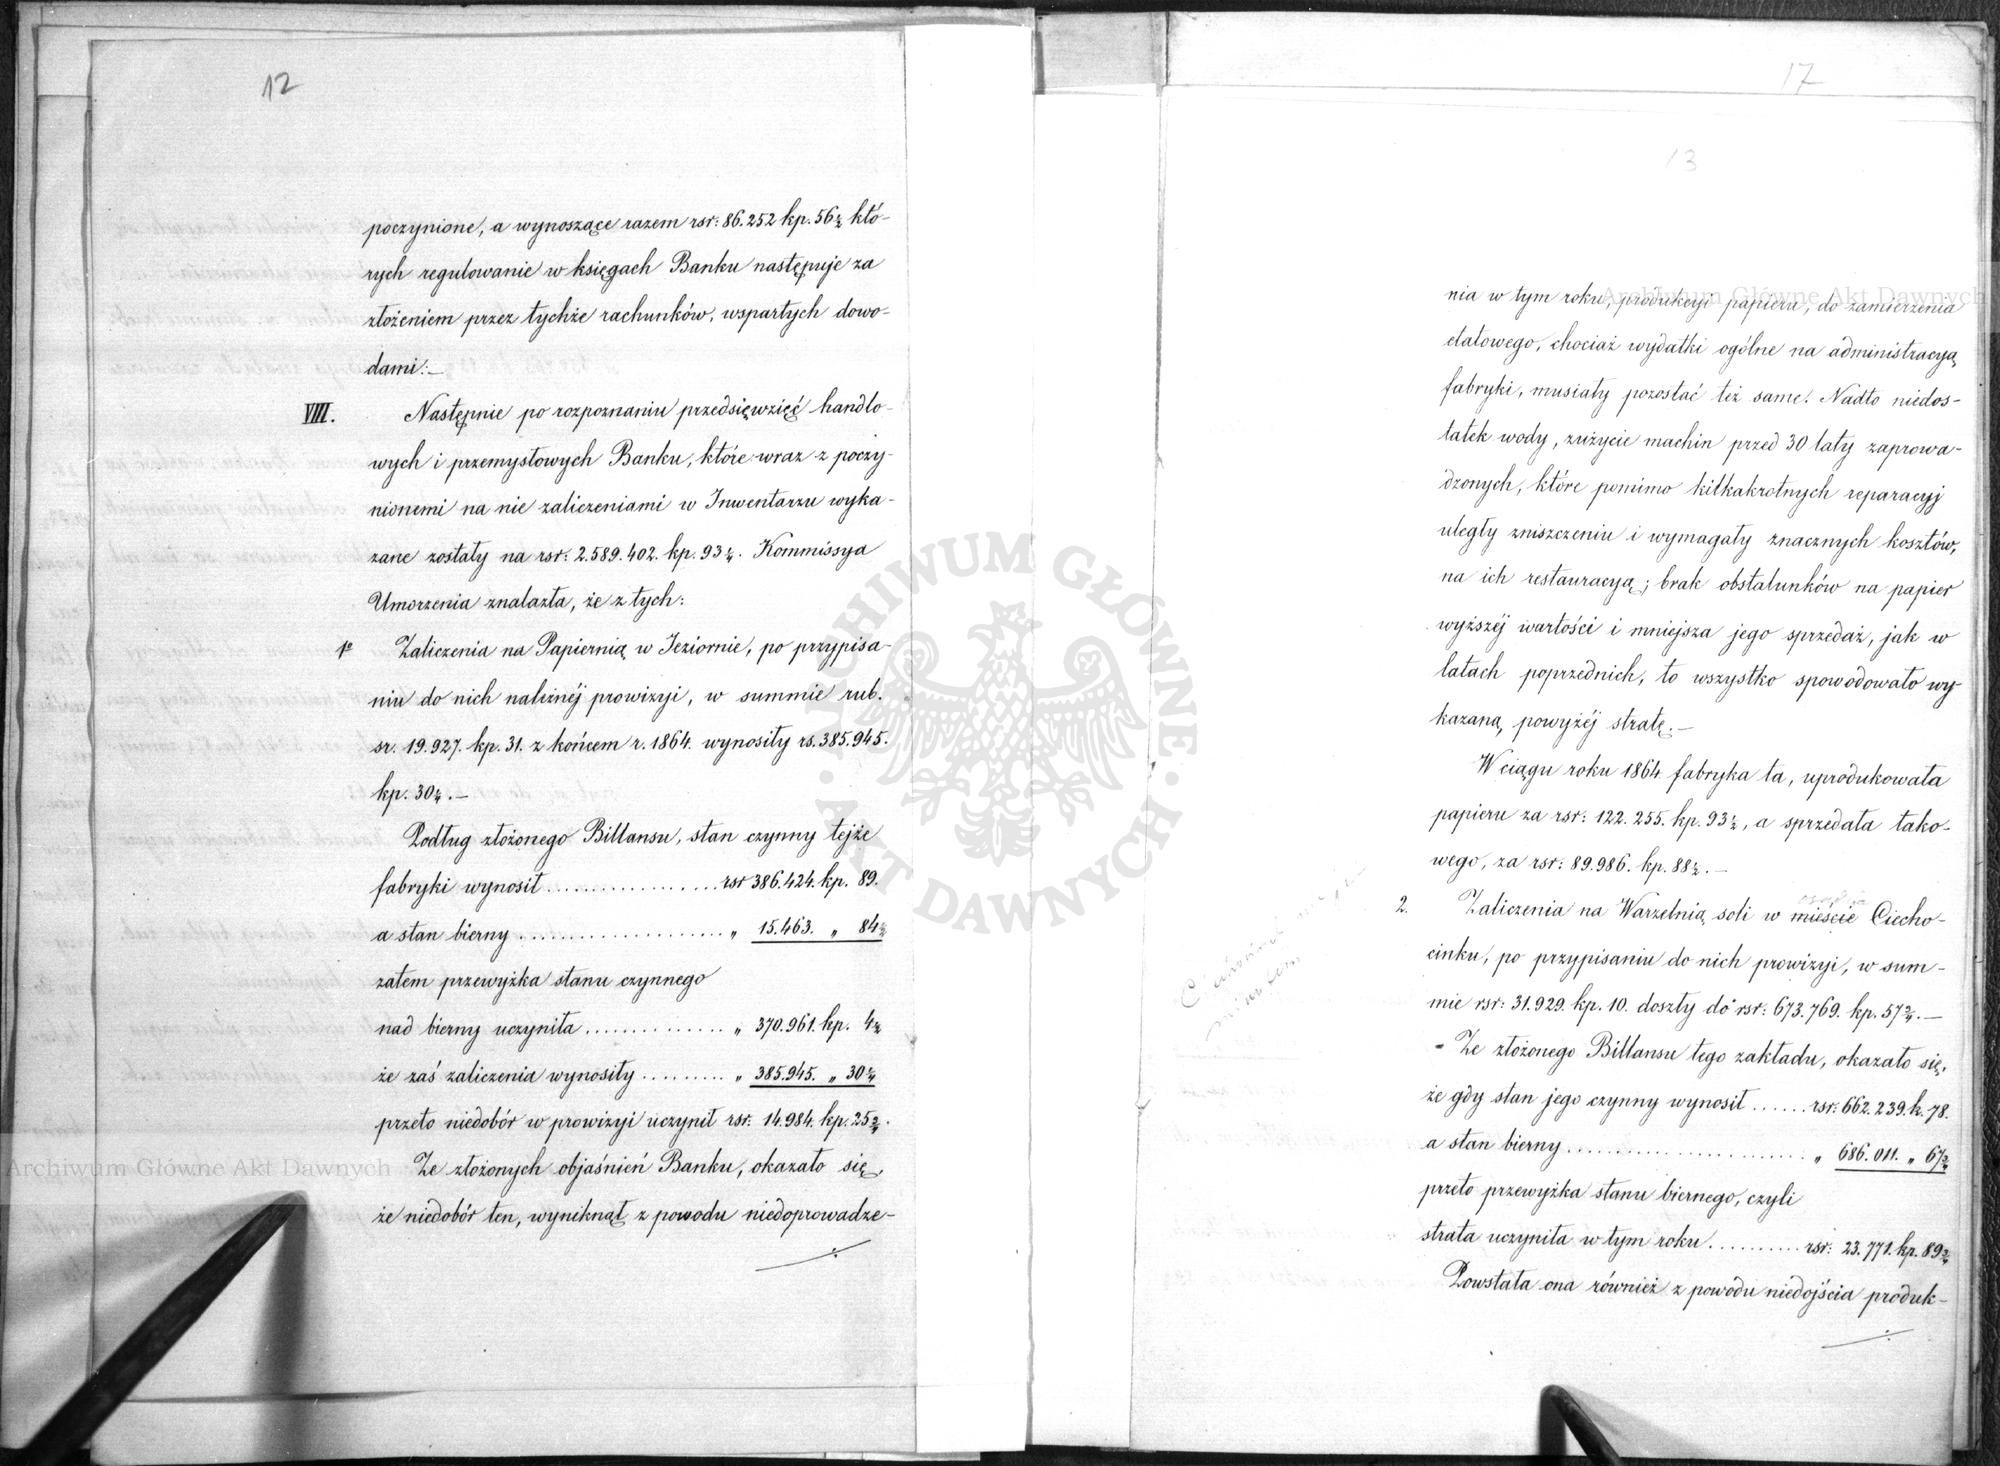 12
poczynione, a wynoszące razem rsr: 86.252 kp. 56½ któ-
rych regulowanie w księgach Banku następuje za
złożeniem przez tychże rachunków, wspartych dowo-
dami:_
VIII. Następnie po rozpoznaniu przedsięwzięć handlo-
wych i przemysłowych Banku, które wraz z poczy-
nionemi na nie zaliczeniami w Inwentarzu wyka-
zane zostały na rsr: 2.589.402. kp. 93½. Kommissya
Umorzenia znalazła, że z tych:
1º Zaliczenia na Papiernią w Jeziornie, po przypisa-
niu do nich należnéj prowizyi, w summie rub.
sr. 19.927. kp. 31. z końcem r. 1864. wynosiły rs. 385.945.
kp. 30¼._
Podług złożonego Billansu, stan czynny tejże
fabryki wynosił .................. rsr 386.424. kp. 89.
a stan bierny ..................... „ 15.463. „ 84½
zatem przewyżka stanu czynnego
nad bierny uczyniła .............. „ 370.961. kp. 4½
że zaś zaliczenia wynosiły ......... „ 385.945. „ 30¼
przeto niedobór w prowizyi uczynił rsr. 14.984. kp. 25¾.
Ze złożonych objaśnień Banku, okazało się,
że niedobór ten, wyniknął z powodu niedoprowadze-
17
13
nia w tym roku, produkcyi papieru, do zamierzenia
etatowego, chociaż wydatki ogólne na administracyą
fabryki, musiały pozostać też same. Nadto niedos-
tatek wody, zużycie machin przed 30 laty zaprowa-
dzonych, które pomimo kilkakrotnych reparacyj
uległy zniszczeniu i wymagały znacznych kosztów,
na ich restauracyą; brak obstalunków na papier
wyższéj wartości i mniejsza jego sprzedaż, jak w
latach poprzednich, to wszystko spowodowało wy-
kazaną powyżéj stratę._
W ciągu roku 1864 fabryka ta, uprodukowała
papieru za rsr: 122.255. kp. 93½, a sprzedała tako-
wego, za rsr: 89.986. kp. 88½._
2. Zaliczenia na Warzelnią soli w mieście Ciecho-
cinku, po przypisaniu do nich prowizyi, w sum-
mie rsr: 31.929. kp. 10. doszły do rsr: 673.769. kp. 57¾._
Ze złożonego Billansu tego zakładu, okazało się,
że gdy stan jego czynny wynosił ...... rsr: 662.239. k. 78.
a stan bierny ........................ „ 686.011. „ 67¾
przeto przewyżka stanu biernego, czyli
strata uczyniła w tym roku .......... rsr: 23.771. kp. 89¾
Powstała ona również z powodu niedojścia produk-
ARCHIWUM GŁÓWNE AKT DAWNYCH
Archiwum Główne Akt Dawnych
Archiwum Główne Akt Dawnych